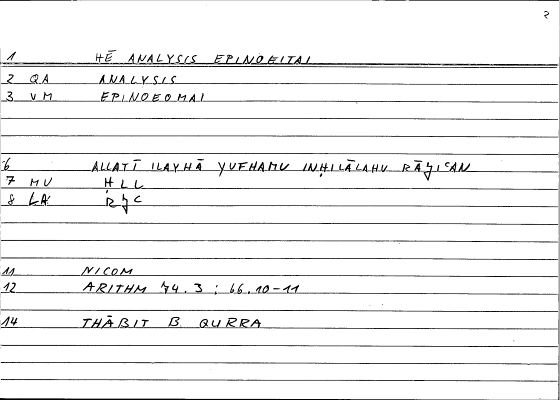 2
1 HĒ ANALYSIS EPINOEITAI
2 QA ANALYSIS
3 VM EPINOEOMAI
6 ALLATĪ ILAYHĀ YUFHAMU INḤILĀLAHU RĀǦIʿAN
7 MU ḤLL
8 LA RǦʿ
11 NICOM
12 ARITHM 74.3 ; 66.10-11
14 THĀBIT B. QURRA